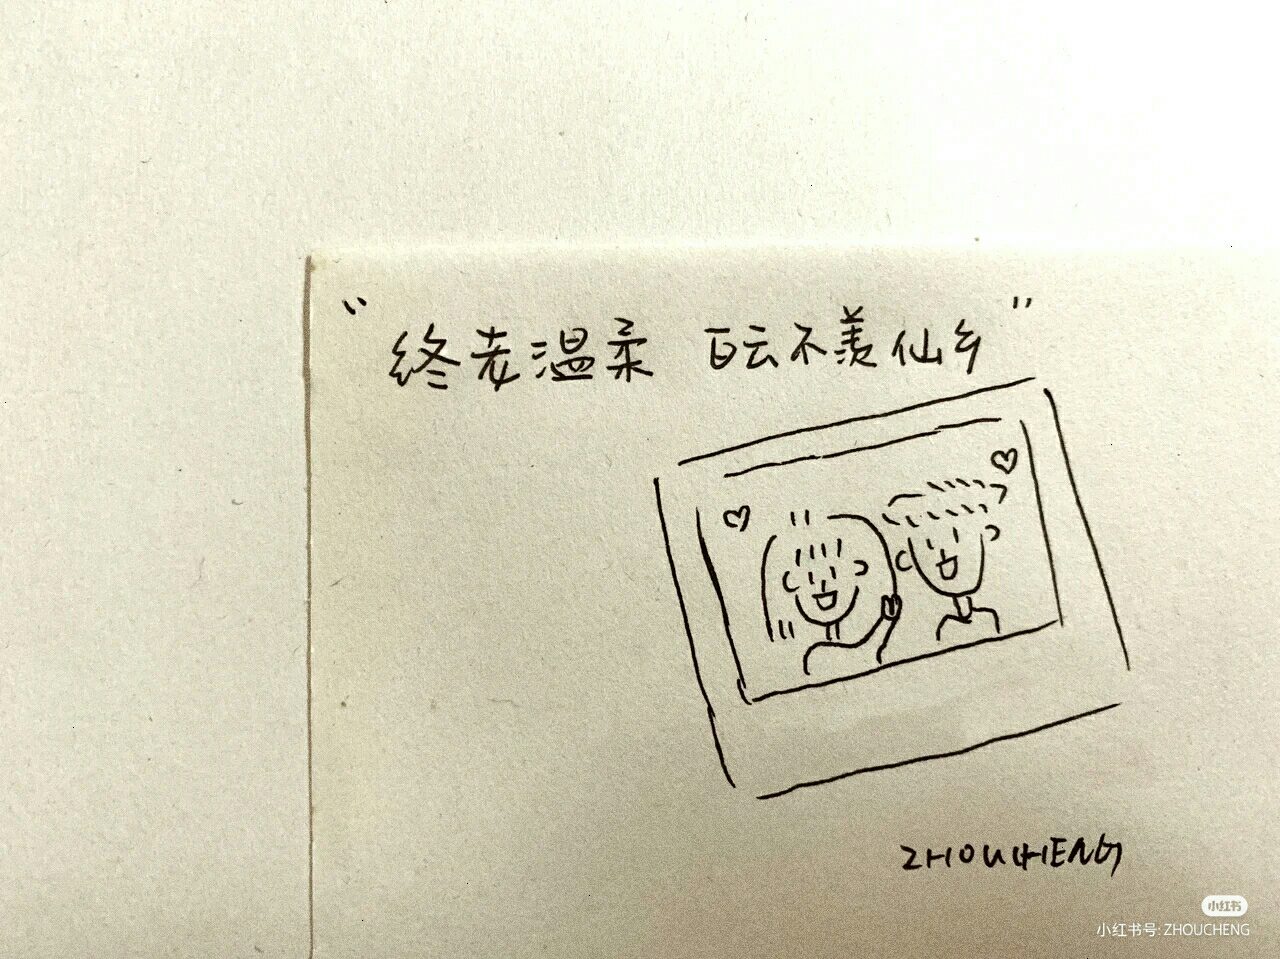 “终老温柔 白云不羡仙乡”
ZHOUCHENG
小红书
小红书号: ZHOUCHENG